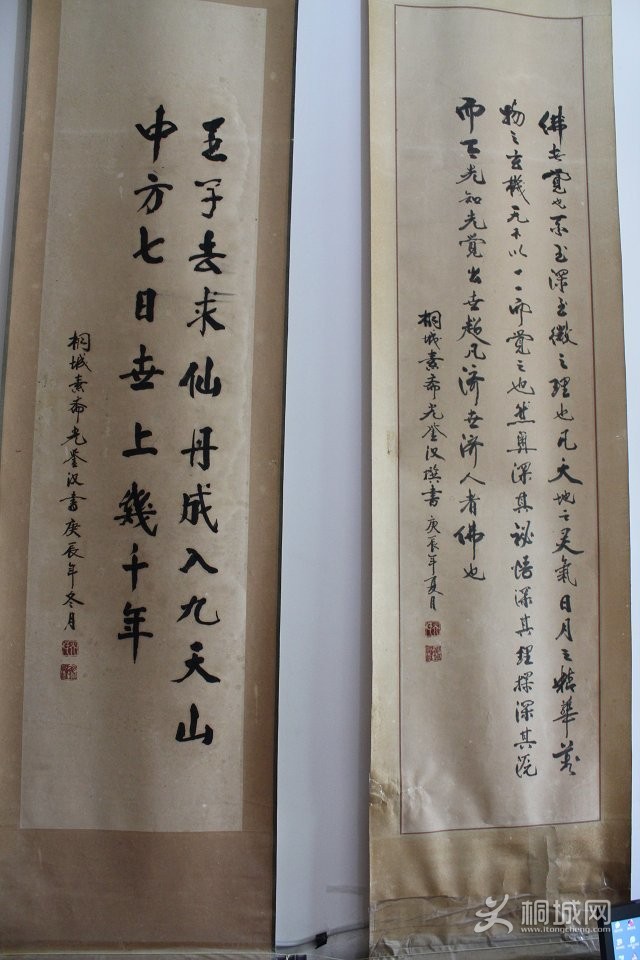 佛者覺也系至深至微之理也凡天地之灵氣日月之精華萬
物之玄機无不以一一而覺之也然奥深其秘悟深其理探深其
而先知先覺出世超凡济世济人者佛也
桐城素斋光鉴汉撰書庚辰年夏月
王子去求仙丹成入九天山
中方七日世上幾千年
桐城素斋光鉴汉書庚辰年冬月
桐城网
www.itongcheng.com